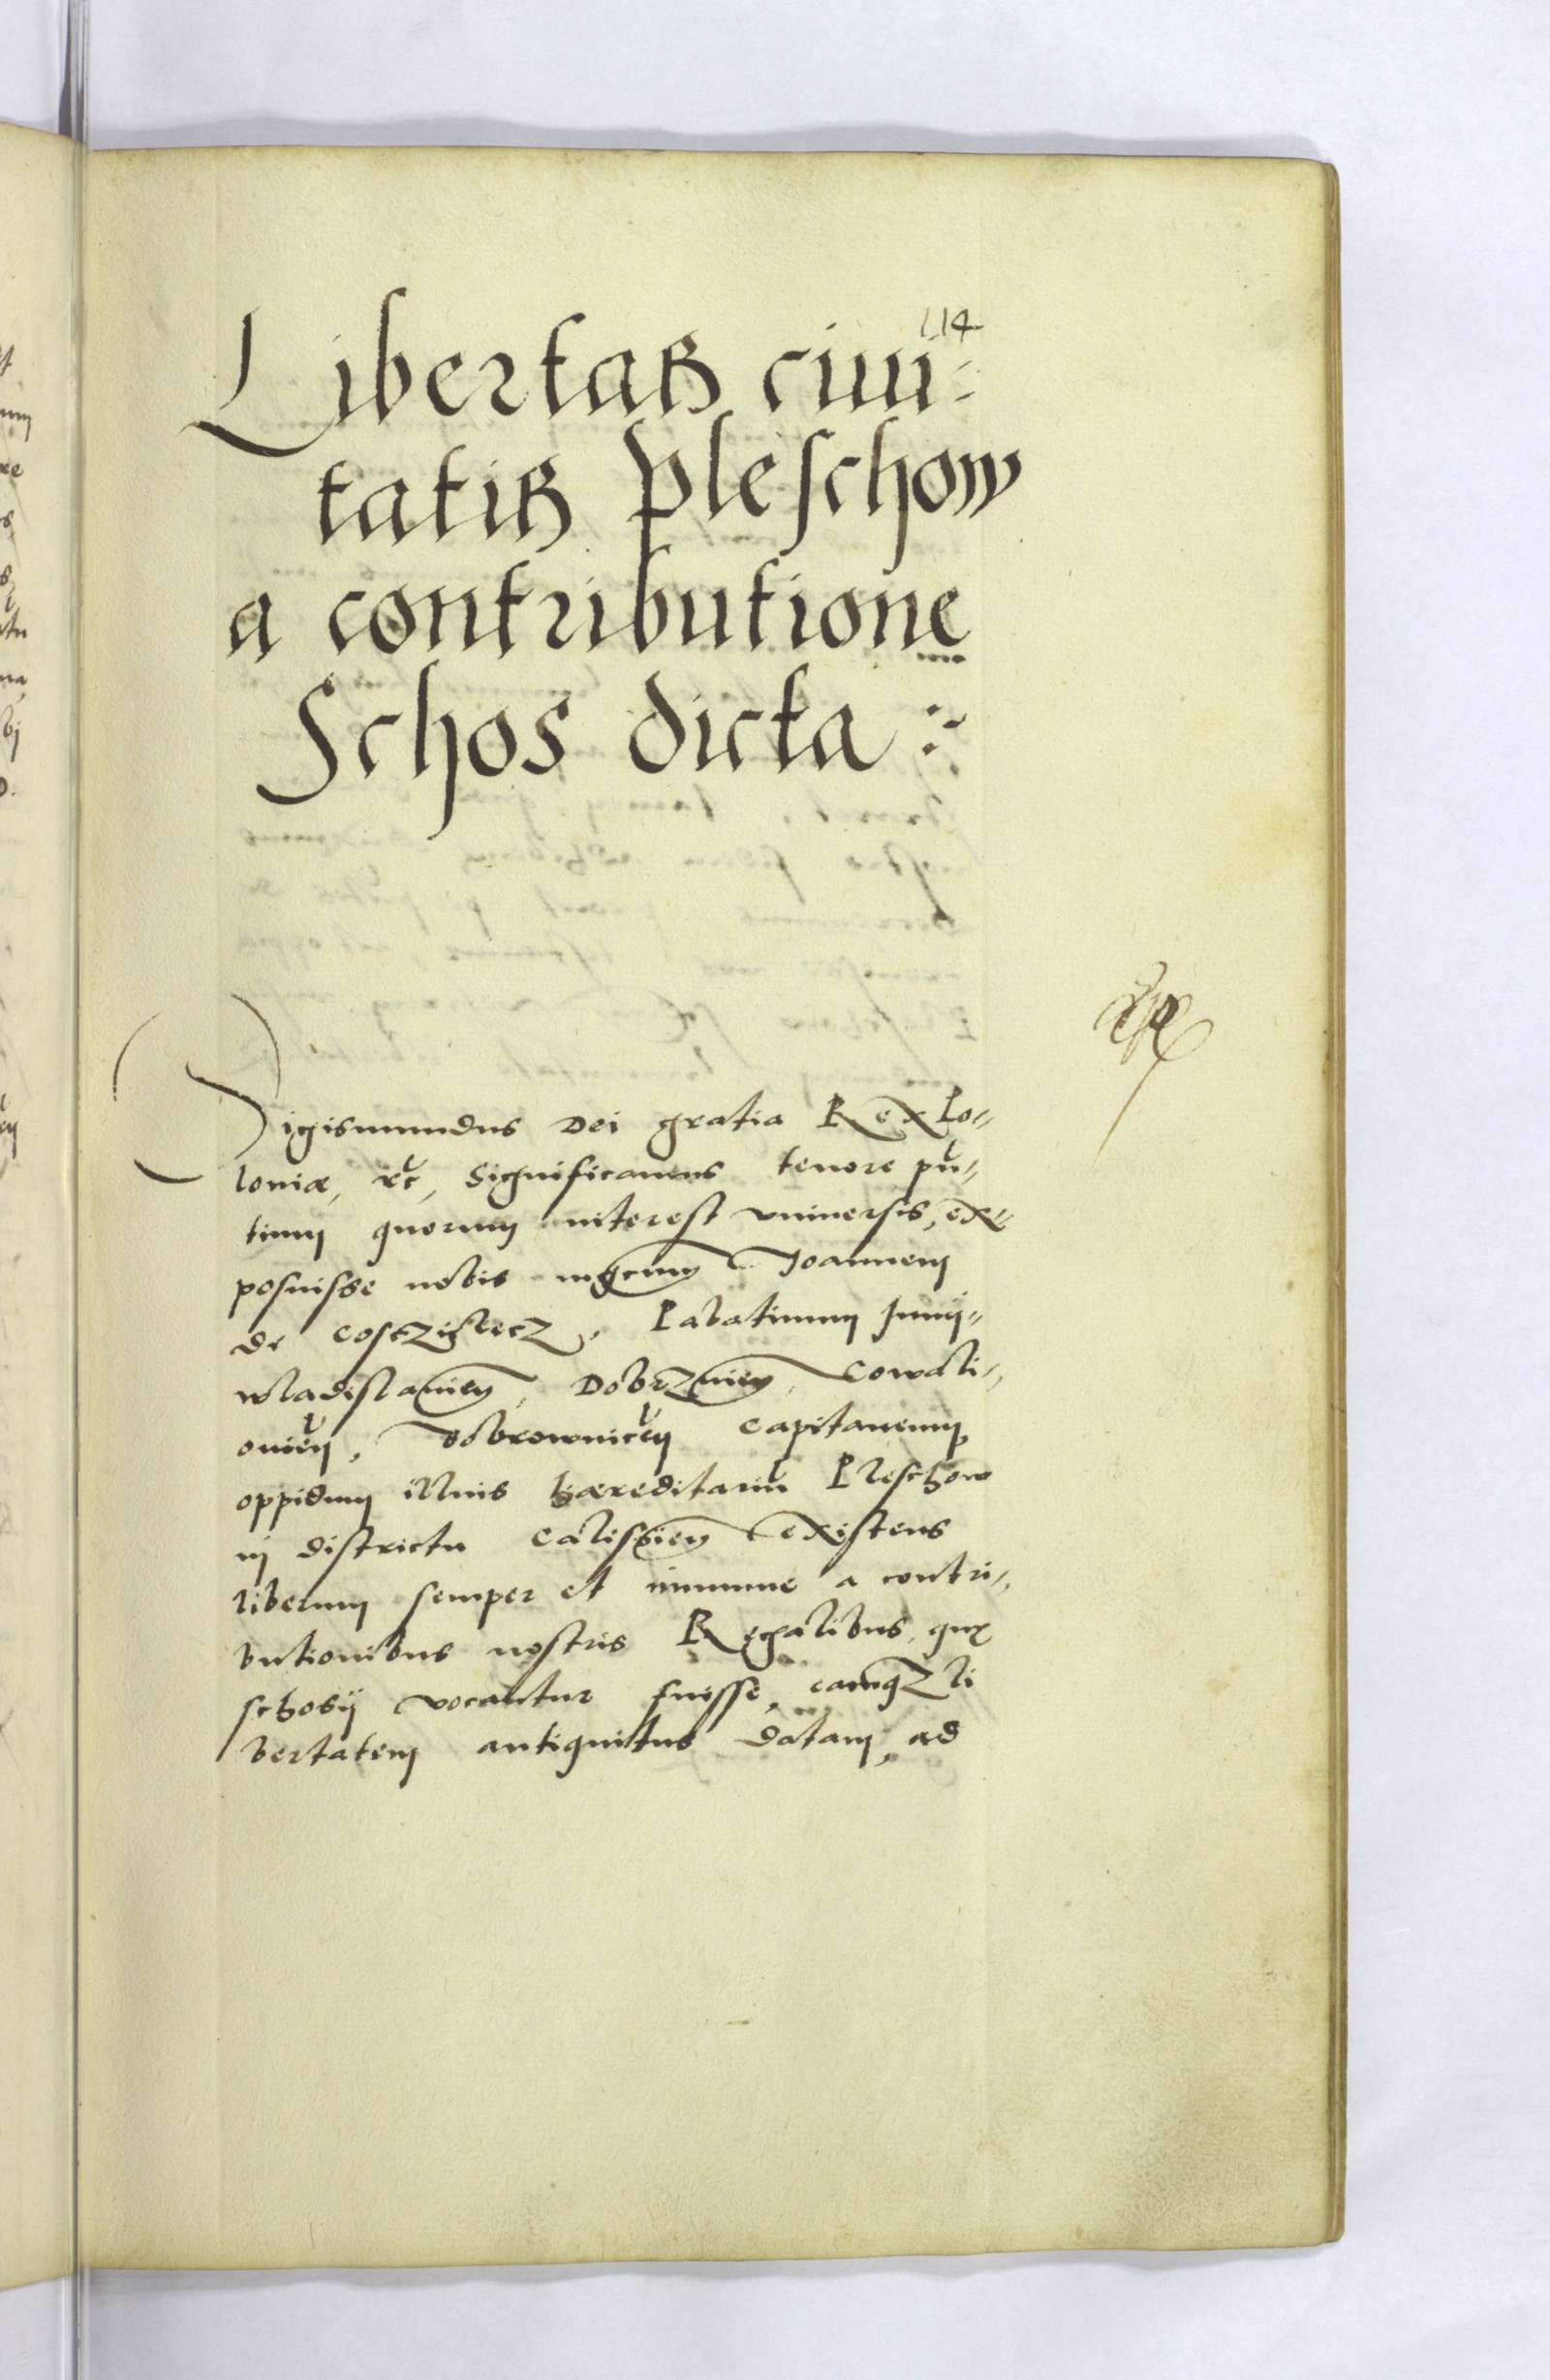 114
Libertas ciui-
tatis Pleschow
a contributione
Schos dicta :~
Sigismundus Dei gratia Rex Po-
loniæ, &c, Significamus tenore pn̄-
tium quorum interest vniuersis, ex-
posuisse nobis mgcum Joannem
de Cosczielecz, Palatinum Juni-
wladislauien̄, Dobrzinien̄, Cowali-
ouien̄, Bobrownicen̄ Capitaneum,
oppidum illius hæreditariū Pleschow
in districtu Calissien̄ existens
liberum semper et immune a contri-
butionibus nostris Regalibus, quæ
schosÿ vocantur fuisse, eamqz li
bertatem antiquitus datam, ad